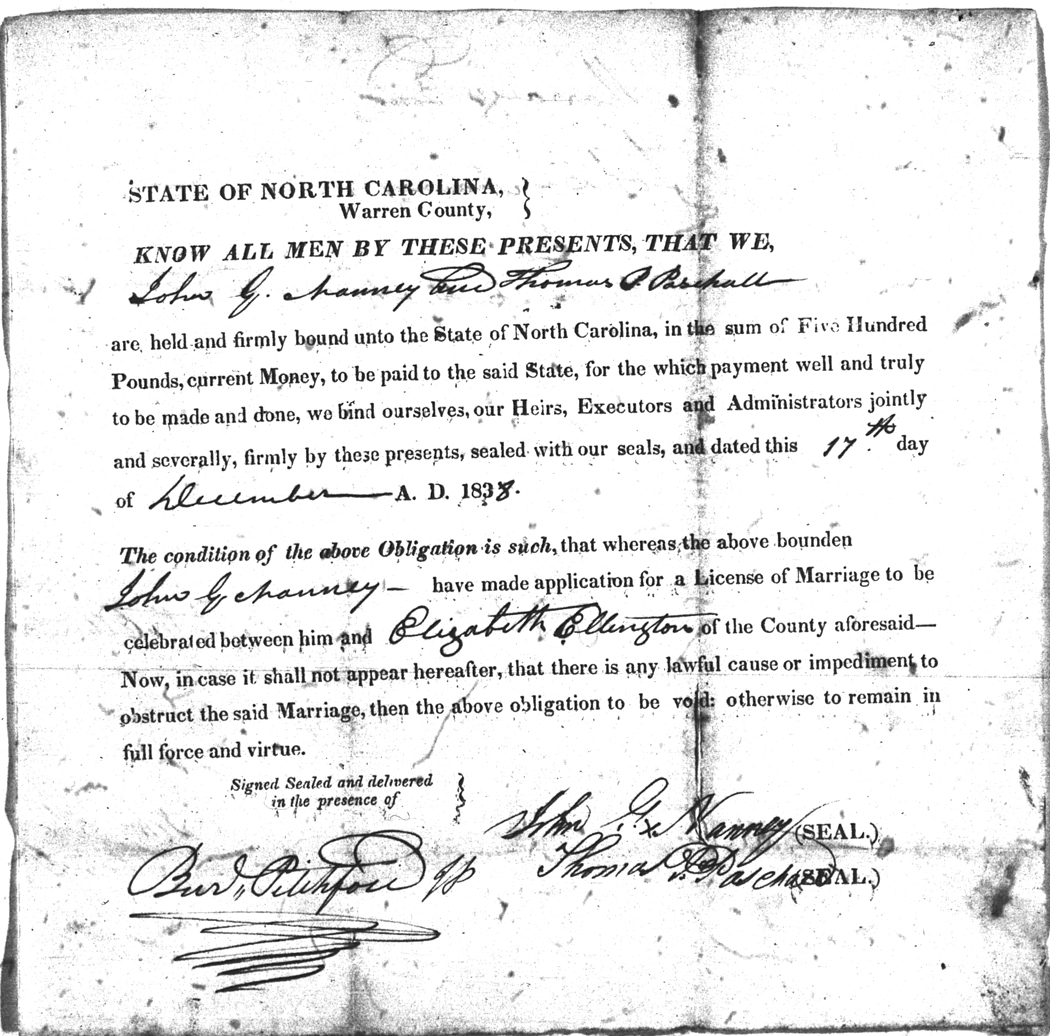 STATE OF NORTH CAROLINA,
Warren County,
KNOW ALL MEN BY THESE PRESENTS, THAT WE,
John G. Nanney and Thomas P. Paschall
are held and firmly bound unto the State of North Carolina, in the sum of Five Hundred
Pounds, current Money, to be paid to the said State, for the which payment well and truly
to be made and done, we bind ourselves, our Heirs, Executors and Administrators jointly
and severally, firmly by these presents, sealed with our seals, and dated this 17th day
of December A. D. 1838.
The condition of the above Obligation is such, that whereas, the above bounden
John G Nanney — have made application for a License of Marriage to be
celebrated between him and Elizabeth Ellington of the County aforesaid—
Now, in case it shall not appear hereafter, that there is any lawful cause or impediment to
obstruct the said Marriage, then the above obligation to be void: otherwise to remain in
full force and virtue.
Signed Sealed and delivered
in the presence of
John G. Nanney (SEAL.)
Thomas P. Paschall (SEAL.)
Burd, Pitchford JP